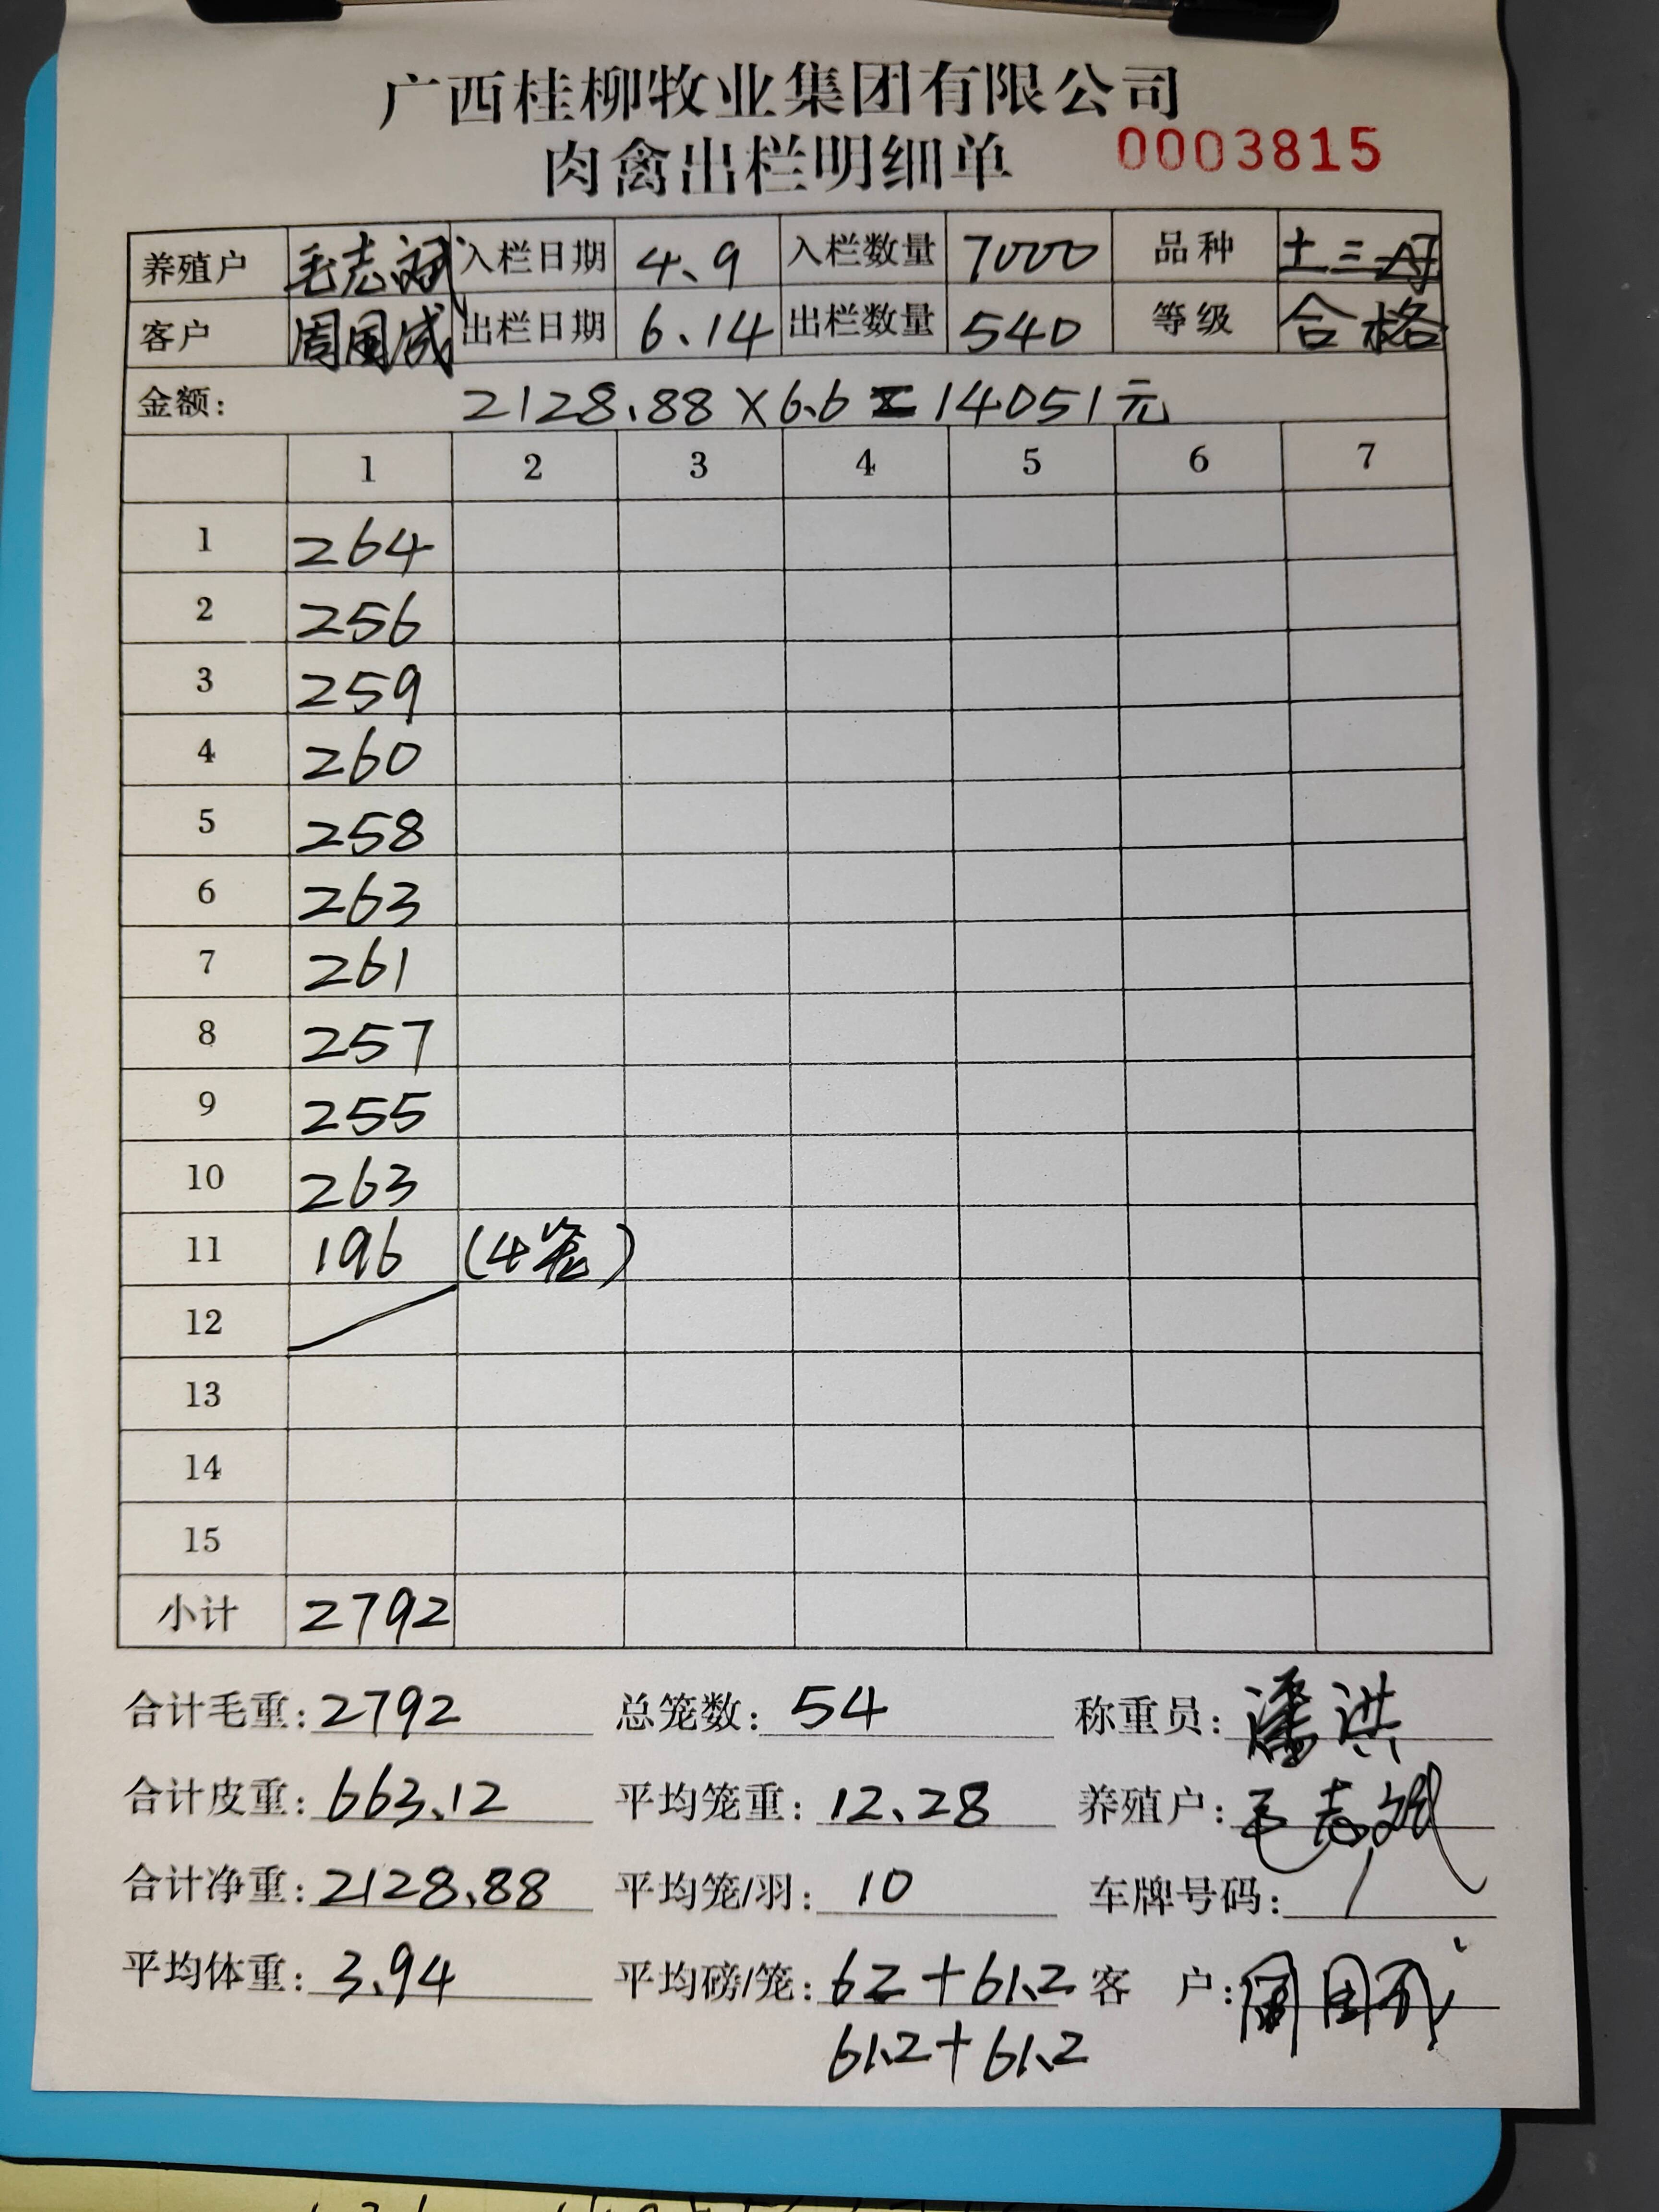 广西桂柳牧业集团有限公司
肉禽出栏明细单 0003815
养殖户 毛志斌 入栏日期 4.9 入栏数量 7000 品种 土三号
客户 周国成 出栏日期 6.14 出栏数量 540 等级 合格
金额: 2128.88×6.6=14051元
1 2 3 4 5 6 7
1 264
2 256
3 259
4 260
5 258
6 263
7 261
8 257
9 255
10 263
11 196 (4笼)
12
13
14
15
小计 2792
合计毛重: 2792 总笼数: 54 称重员: 潘洪
合计皮重: 663.12 平均笼重: 12.28 养殖户: 毛志斌
合计净重: 2128.88 平均笼/羽: 10 车牌号码:
平均体重: 3.94 平均磅/笼: 62+61.2 客 户:
61.2+61.2